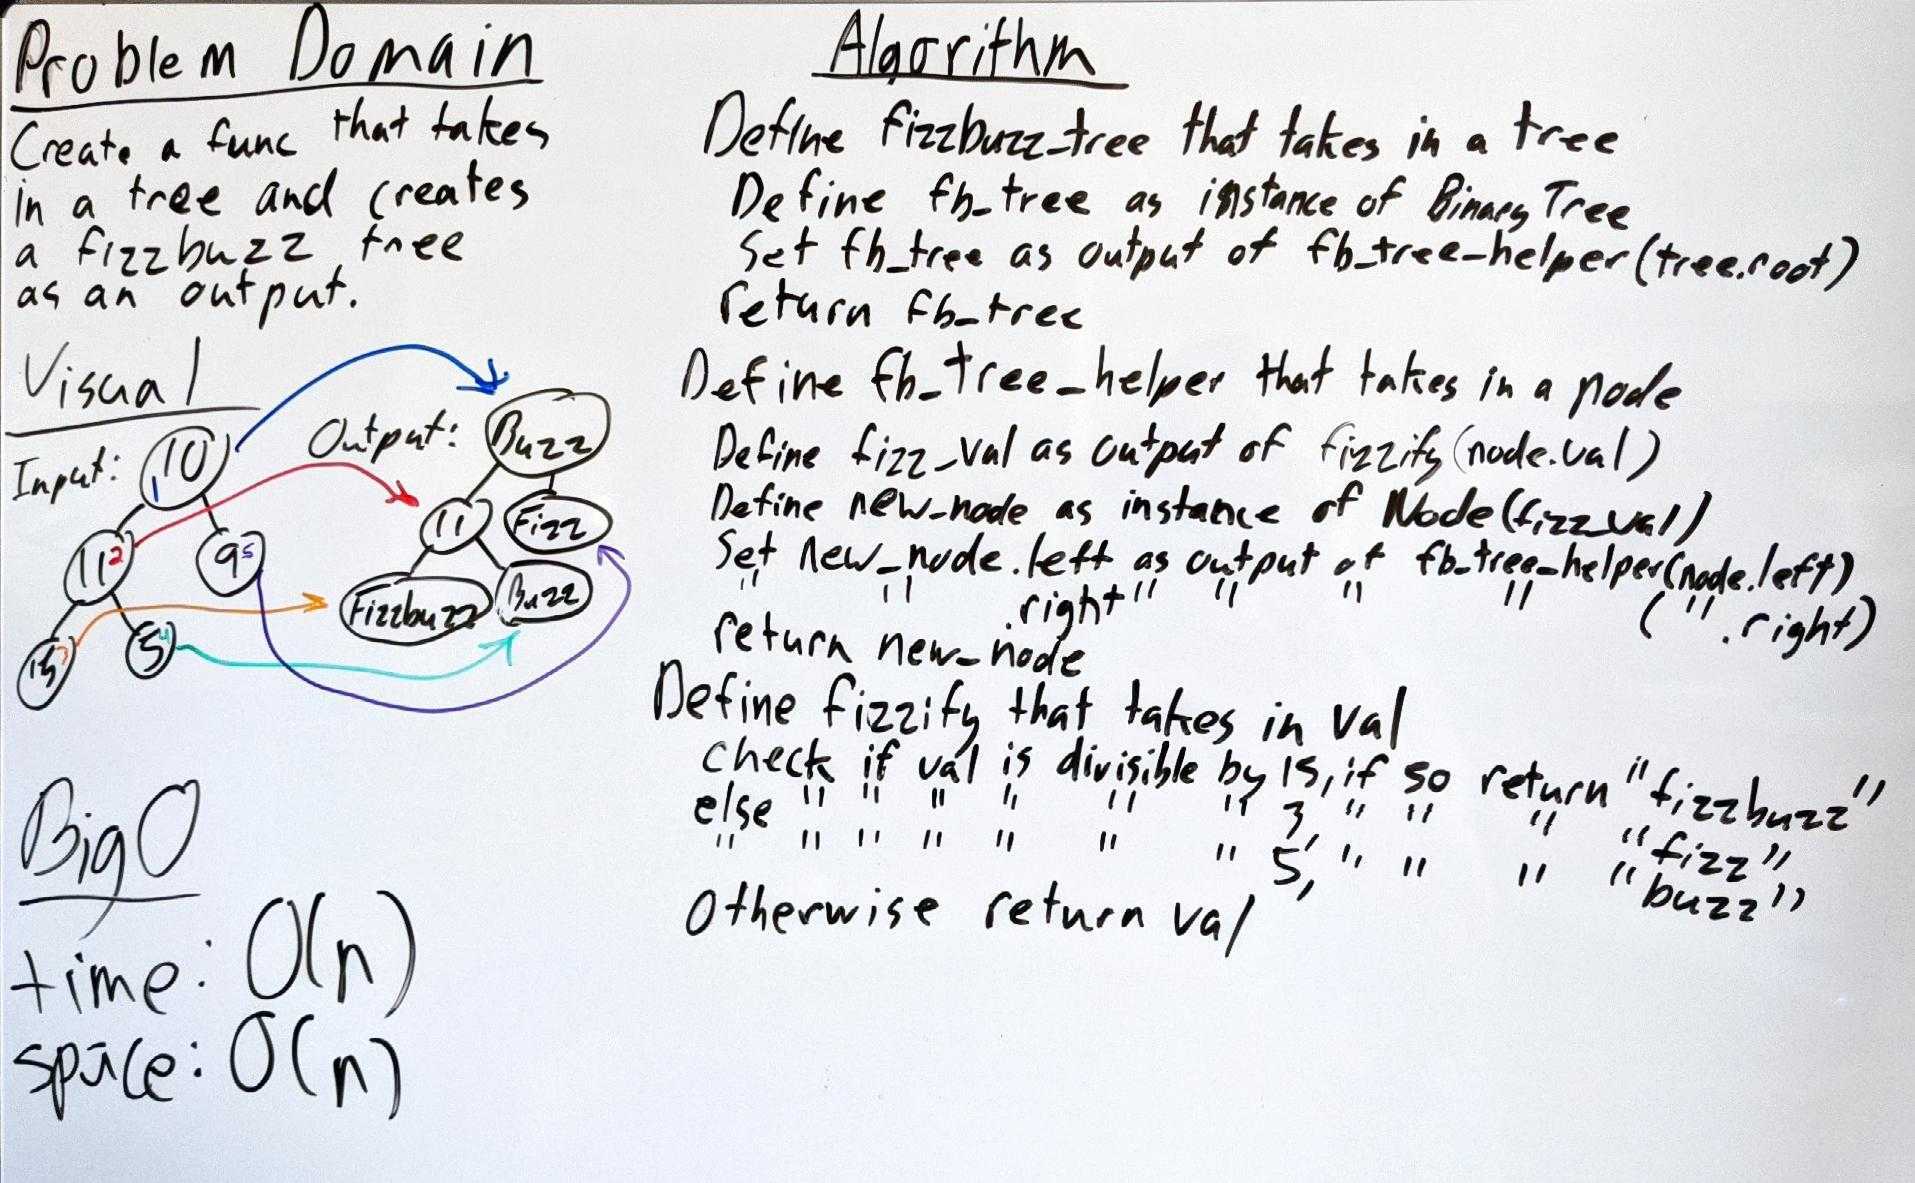 Problem Domain
Create a func that takes
in a tree and creates
a fizzbuzz tree
as an output.
Visual
Input:
10 1
11 2
9 5
15 3
5 4
Output:
Buzz
11
Fizz
Fizzbuzz
Buzz
Big O
time: O(n)
space: O(n)
Algorithm
Define fizzbuzz_tree that takes in a tree
Define fb_tree as instance of Binary Tree
Set fb_tree as output of fb_tree_helper(tree.root)
return fb_tree
Define fb_tree_helper that takes in a node
Define fizz_val as output of fizzify(node.val)
Define new_node as instance of Node(fizz_val)
Set new_node.left as output of fb_tree_helper(node.left)
" " .right " " " " ( " .right)
return new_node
Define fizzify that takes in val
check if val is divisible by 15, if so return "fizzbuzz"
else " " " " " " 3, " " " "fizz"
" " " " " " " 5, " " " "buzz"
Otherwise return val